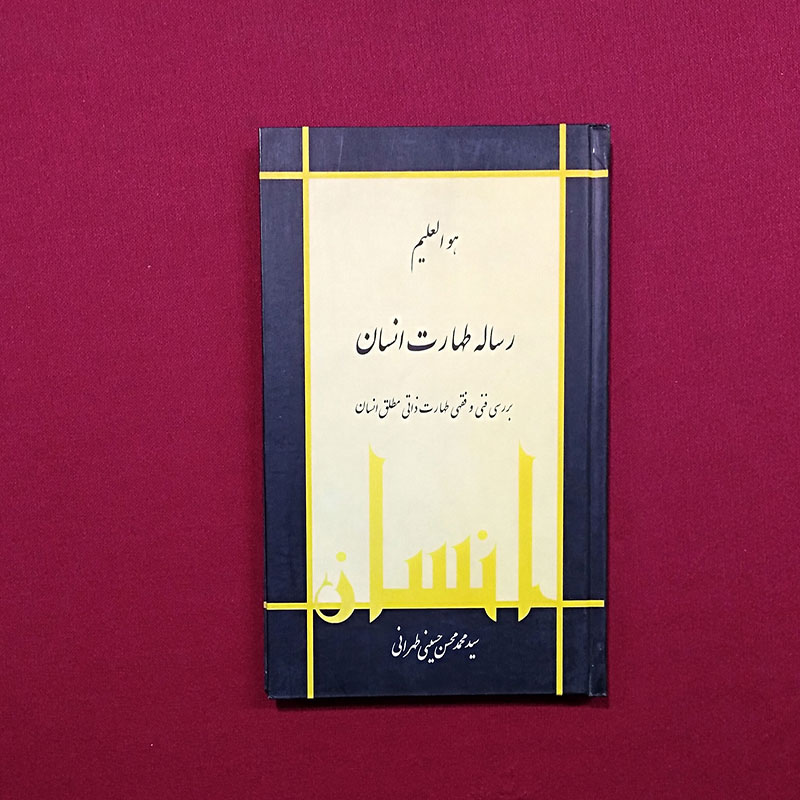 هو العلیم
رساله طهارت انسان
بررسی فنی و فقهی طهارت ذاتی مطلق انسان
انسان
سید محمد محسن حسینی طهرانی